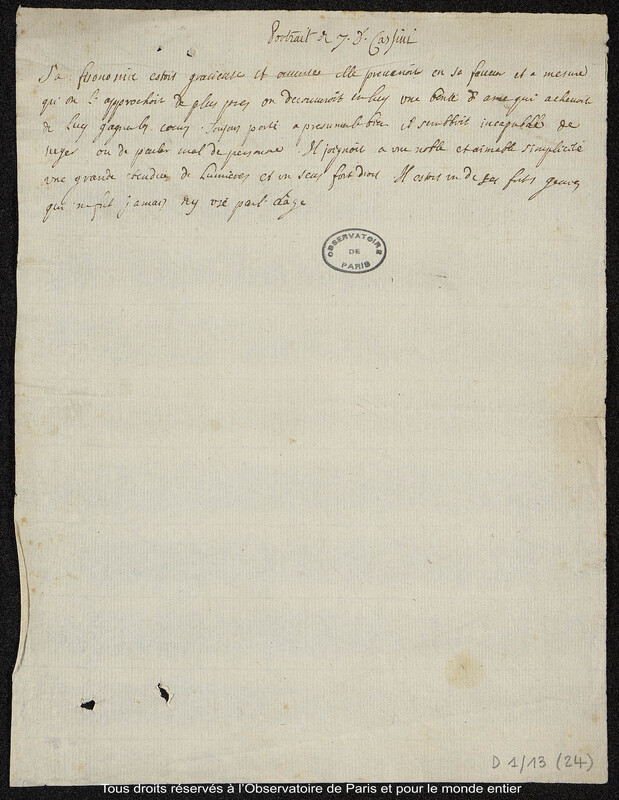 Portrait de J. D. Cassini
Sa fisionomie estoit gracieuse et ouverte elle prevenoit en sa faveur et a mesure
qu on l approchoit de plus pres on decouvroit en luy une bonté d ame qui achevoit
de luy gagner les cœurs toujours porté a presumer le bien il sembloit incapable de
ou de parler mal de personne Il joignoit a une noble et aimable simplicité
une grande etendue de lumieres et un sens fort droit Il estoit un de ses
qui ne fut jamais ny usé par l age
OBSERVATOIRE
DE
PARIS
D 1/13 (24)
Tous droits réservés à l'Observatoire de Paris et pour le monde entier